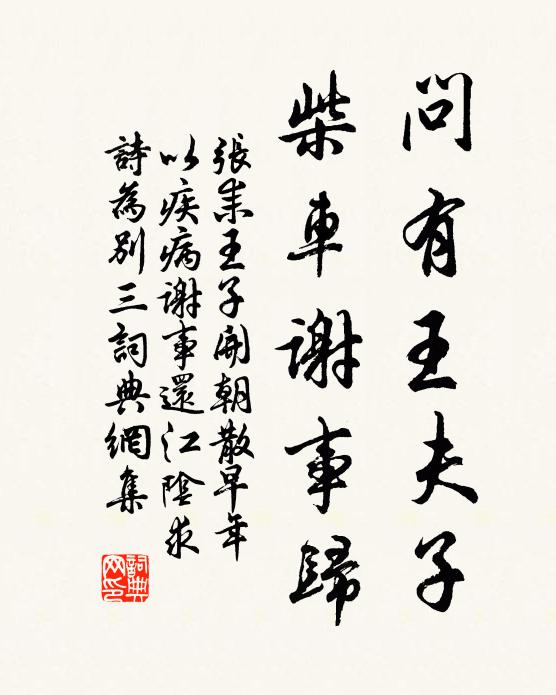 問有王夫子
柴車謝事歸
張耒王子開朝散早年
以疾病謝事還江陰求
詩為別三詞典網集
詞典
网印